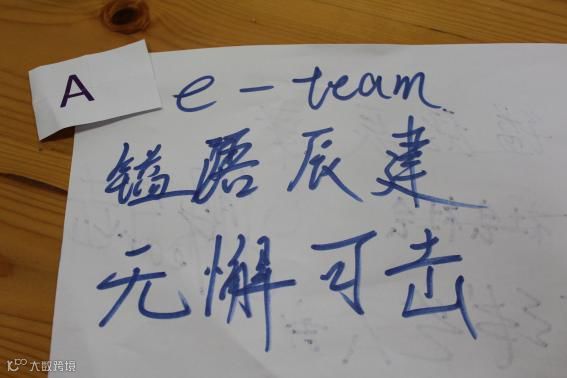 A
e-team
镒語辰建
无懈可击
大数跨境